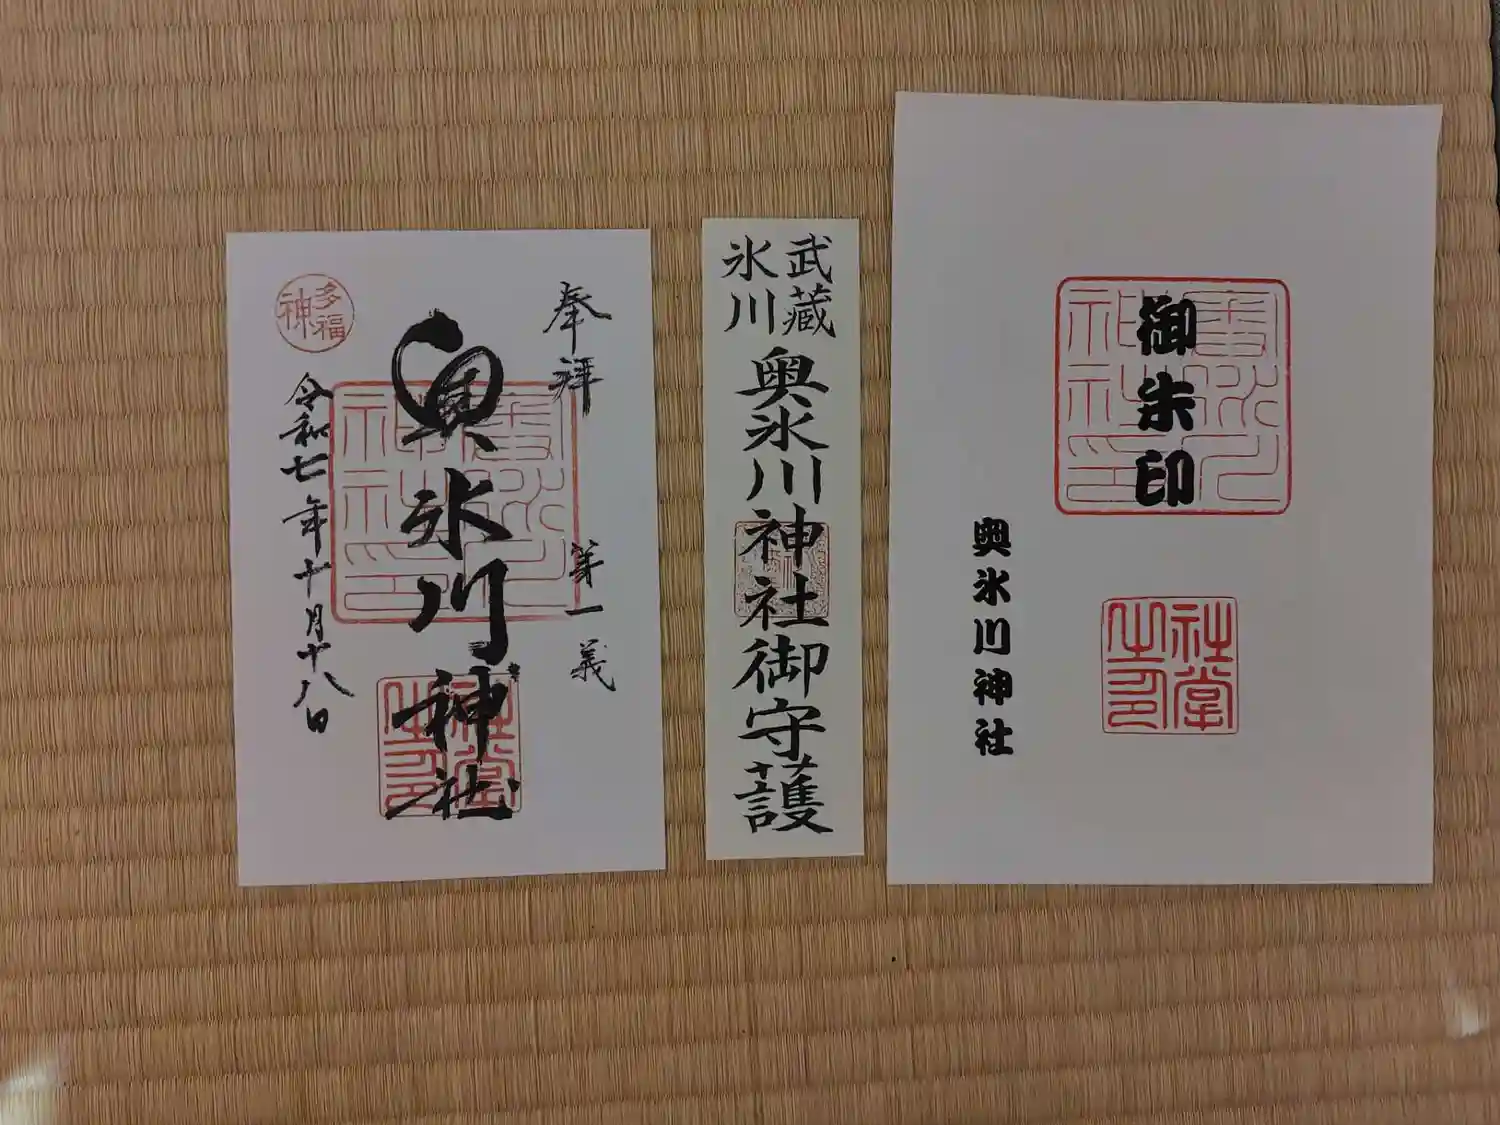 奉拝
第一義
奥氷川神社
奥氷川神社印
社掌之印
多福神
令和七年十月十八日
武蔵
氷川
奥氷川神社御守護
御朱印
奥氷川神社印
社掌之印
奥氷川神社